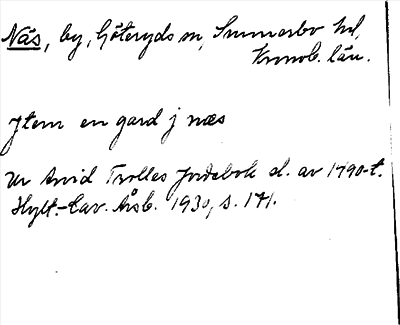 Näs, by, Göteryds sn, Sunnerbo hd,
Kronob. län.
Jtem en gard j næs
Ur Arvid Trolles Jordebok sl. av 1490-t.
Hylt.-Cav. Årsb. 1930, s. 141.